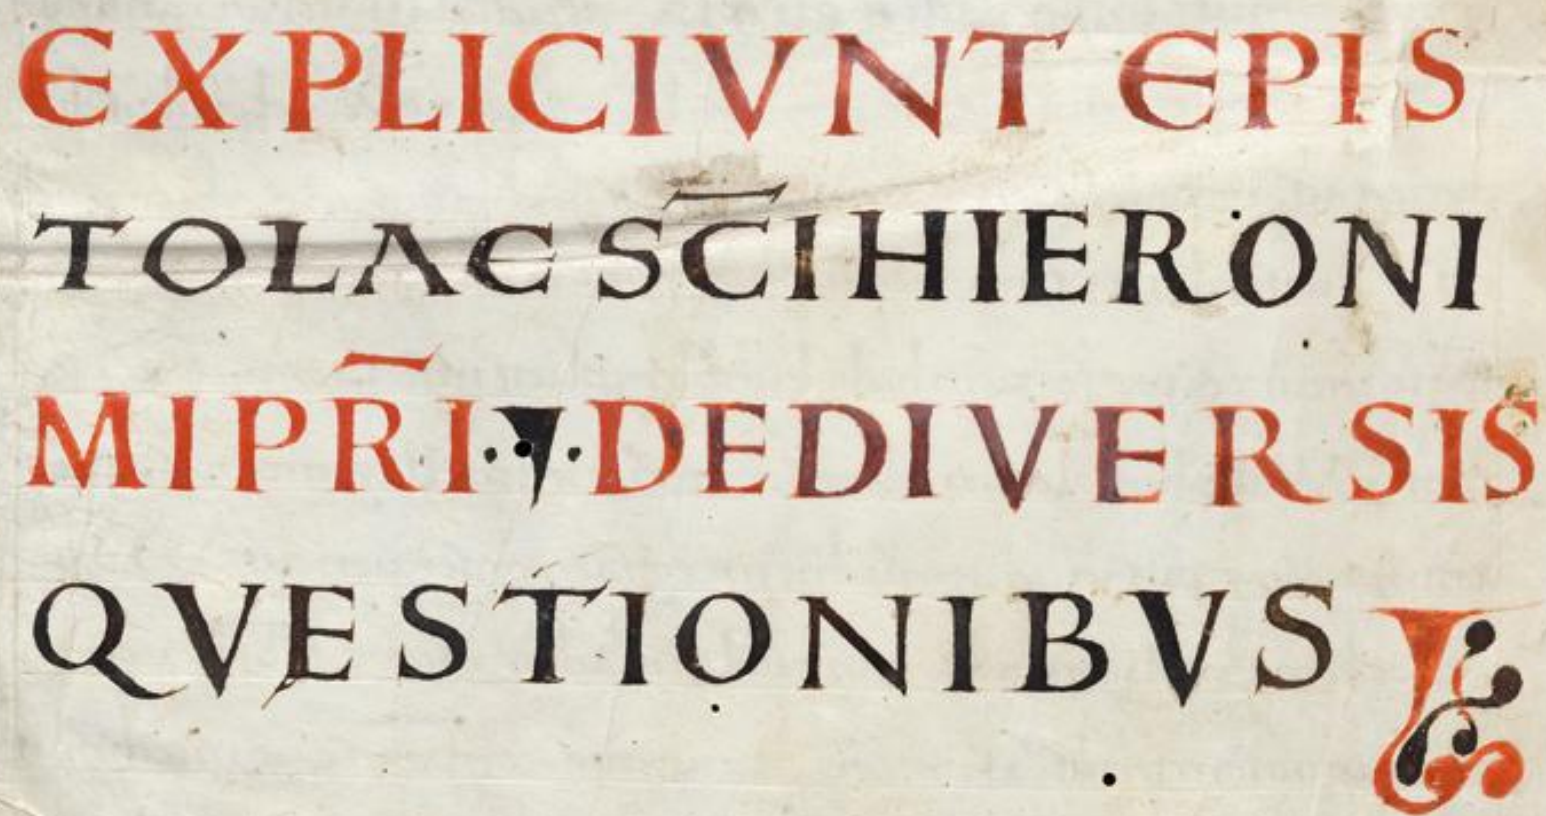 EXPLICIVNT EPIS
TOLAE SC̅I HIERONI
MI PR̅I · DE DIVERSIS
QVESTIONIBVS